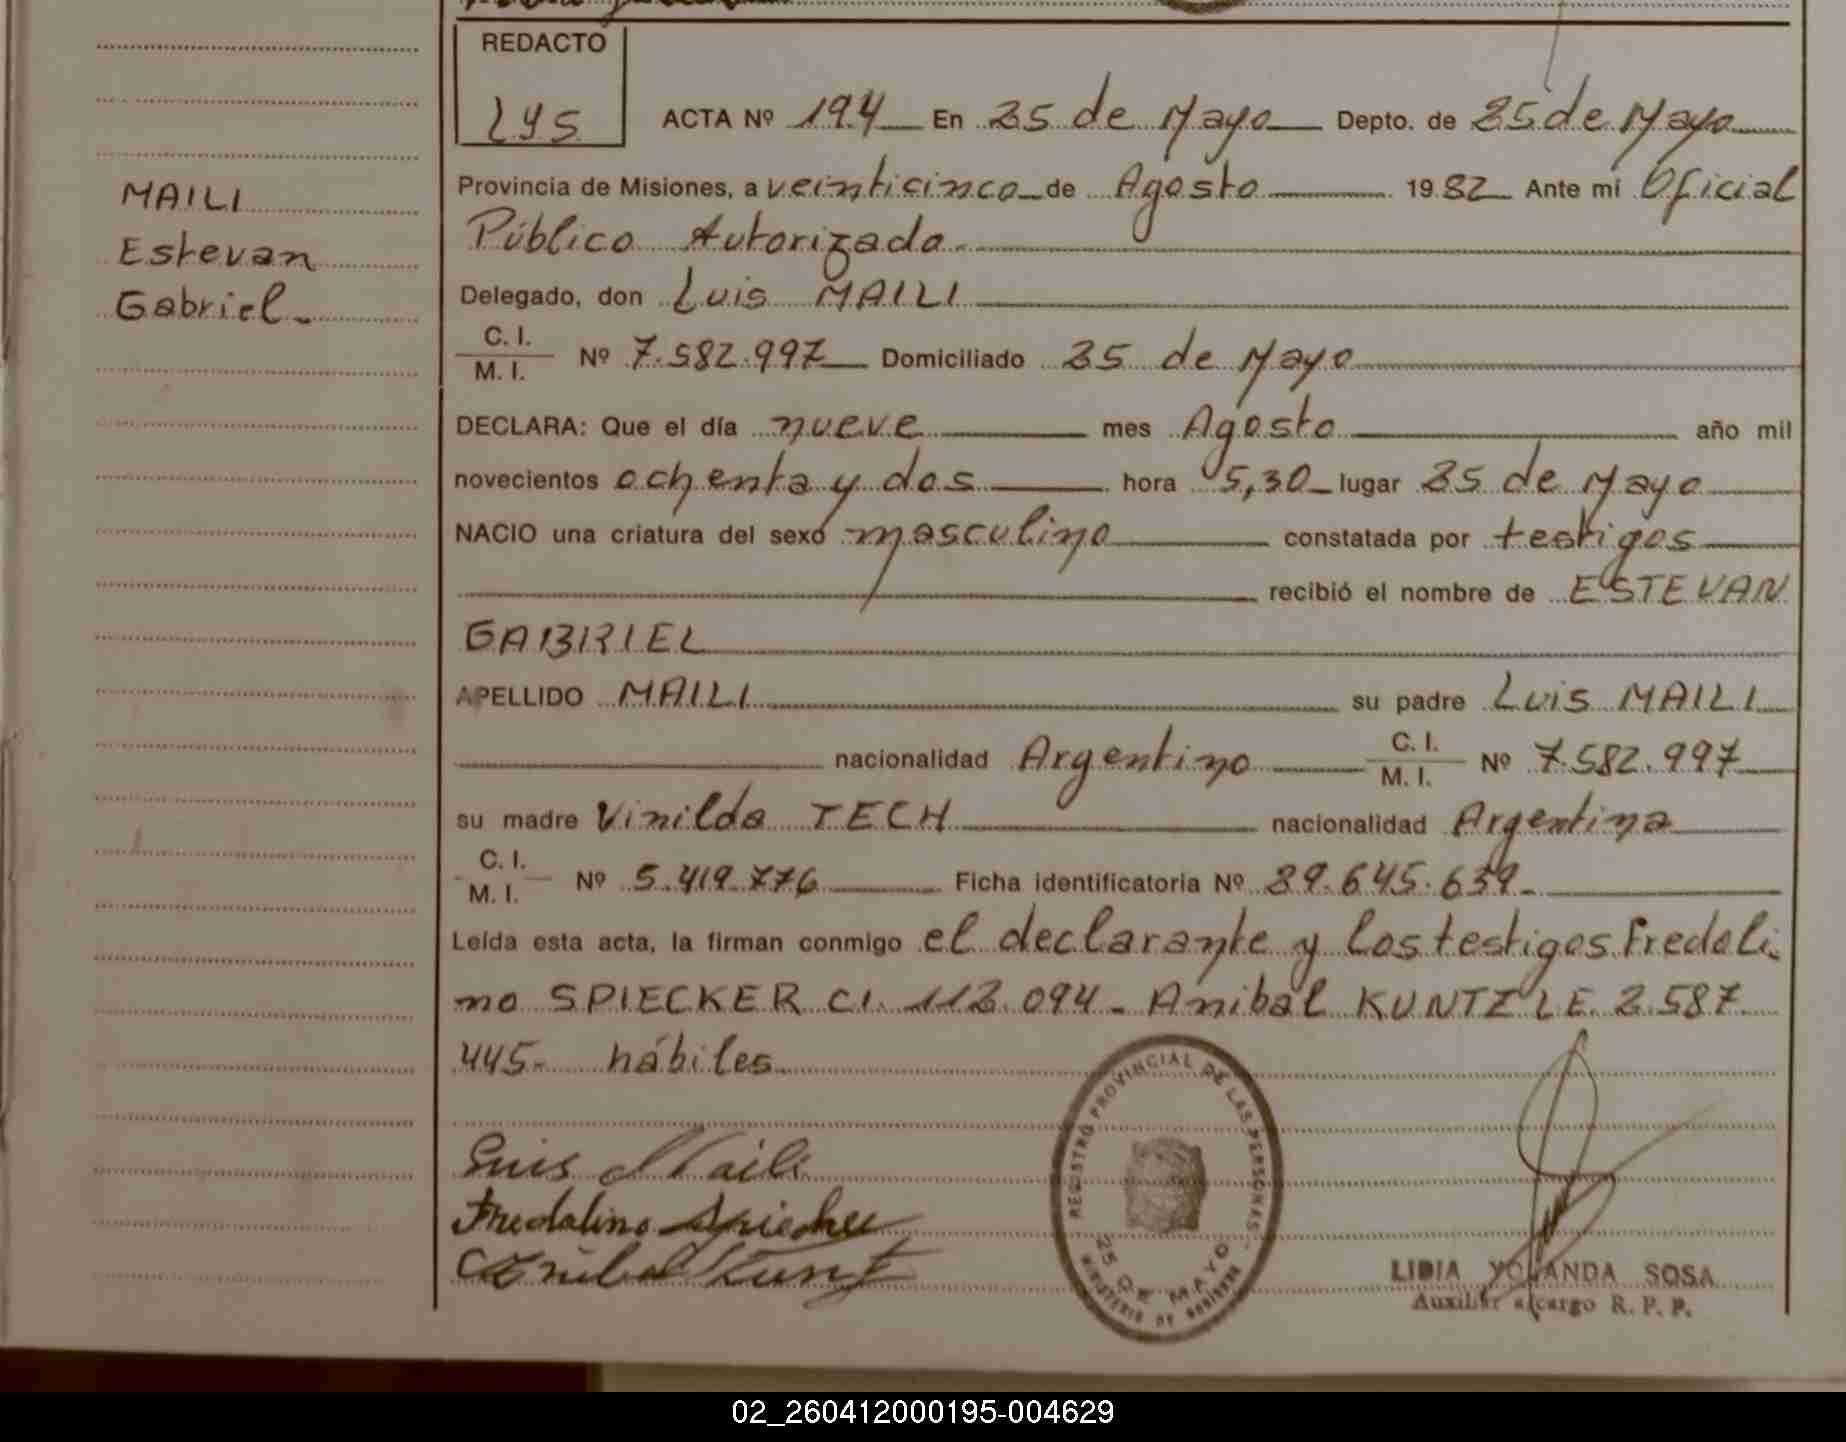 REDACTO
LYS
ACTA Nº 194 En 25 de Mayo Depto. de 25 de Mayo
Provincia de Misiones, a veinticinco de Agosto 1982 Ante mí Oficial
Público Autorizado
MAILI
Estevan
Gabriel
Delegado, don Luis MAILI
C. I.
M. I. Nº 7.582.997 Domiciliado 25 de Mayo
DECLARA: Que el día nueve mes Agosto año mil
novecientos ochenta y dos hora 5,30 lugar 25 de Mayo
NACIO una criatura del sexo masculino constatada por testigos
recibió el nombre de ESTEVAN
GABRIEL
APELLIDO MAILI su padre Luis MAILI
nacionalidad Argentino C. I.
M. I. Nº 7.582.997
su madre Vinilda TECH nacionalidad Argentina
C. I.
M. I. Nº 5.419.776 Ficha identificatoria Nº 29.645.639-
Leída esta acta, la firman conmigo el declarante y los testigos Fredoli
no SPIECKER CI. 112.094- Anibal KUNTZ LE. 2.587.
445- hábiles
Luis Maili
Fredolino Spiecker
Anibal Kuntz
REGISTRO PROVINCIAL DE LAS PERSONAS
25 DE MAYO
MINISTERIO DE GOBIERNO
LIDIA YOLANDA SOSA
Auxiliar a/cargo R. P. P.
02_260412000195-004629